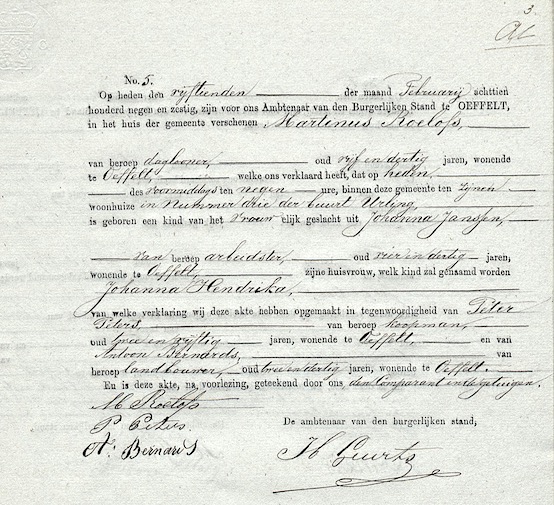 3.
No. 5.
Op heden den vijftienden der maand Februarij achttien
honderd negen en zestig, zijn voor ons Ambtenaar van den Burgerlijken Stand te OEFFELT,
in het huis der gemeente verschenen Martinus Roelofs,
van beroep daglooner, oud vijf en dertig jaren, wonende
te Oeffelt, welke ons verklaard heeft, dat op heden,
des voormiddags ten negen ure, binnen deze gemeente ten zijnen
woonhuize in Nummer drie der buurt Urling,
is geboren een kind van het vrouwelijk geslacht uit Johanna Jansen,
van beroep arbeidster, oud vier en dertig jaren,
wonende te Oeffelt, zijne huisvrouw, welk kind zal genaamd worden
Johanna Hendrika,
van welke verklaring wij deze akte hebben opgemaakt in tegenwoordigheid van Peter
Peters, van beroep koopman,
oud twee en vijftig jaren, wonende te Oeffelt, en van
Antoon Bernards, van
beroep landbouwer, oud twee en dertig jaren, wonende te Oeffelt.
En is deze akte, na voorlezing, geteekend door ons, den comparant en de getuigen.
M Roelofs
P Peters
A: Bernards
De ambtenaar van den burgerlijken stand,
H Geurts